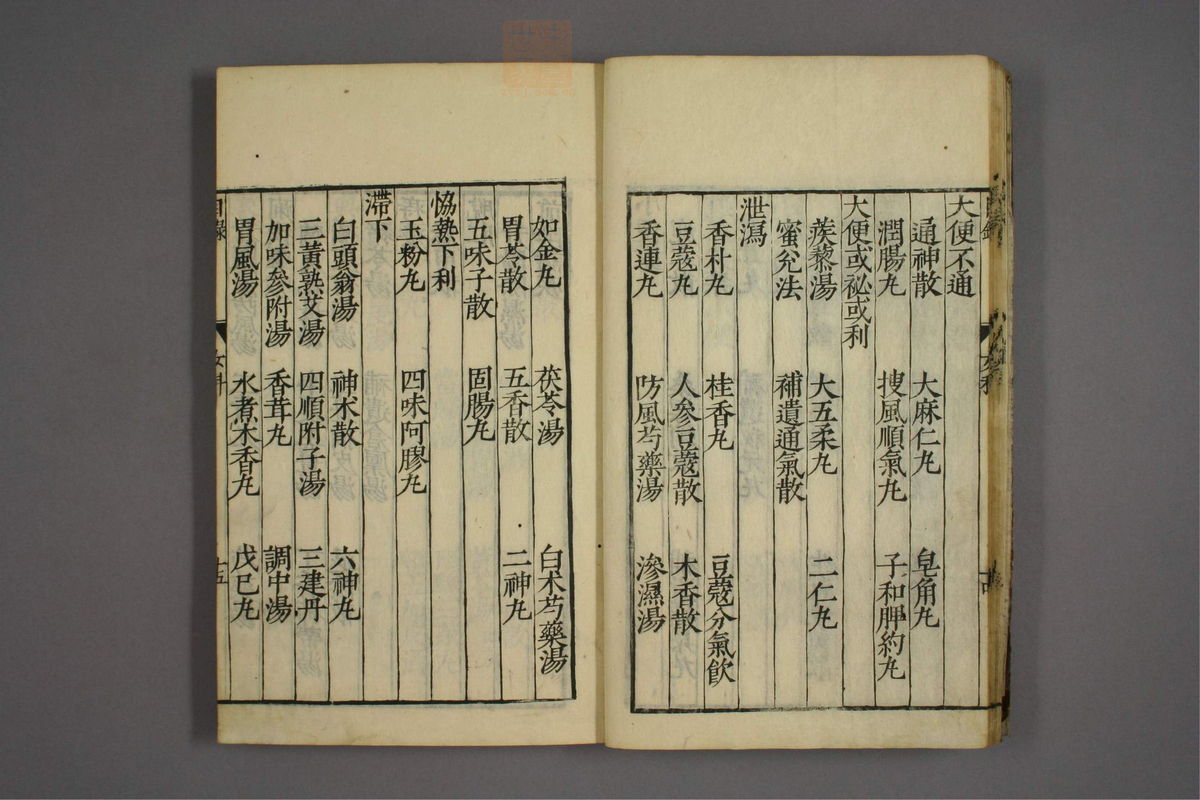 大便不通
通神散 大麻仁丸 皂角丸
潤腸丸 捜風順氣丸 子和脾約丸
大便或祕或利
蒺藜湯 大五柔丸 二仁丸
蜜兊法 補遺通氣散
泄瀉
香朴丸 桂香丸 豆蔻分氣飮
豆蔻丸 人參豆蔻散 木香散
香連丸 防風芍藥湯 滲濕湯
如金丸 茯苓湯 白朮芍藥湯
胃苓散 五香散 二神丸
五味子散 固腸丸
恊熱下利
玉粉丸 四味阿膠丸
滯下
白頭翁湯 神朮散 六神丸
三黃熟艾湯 四順附子湯 三建丹
加味參附湯 香茸丸 調中湯
胃風湯 水煮木香丸 戊己丸
目錄 女科 十五